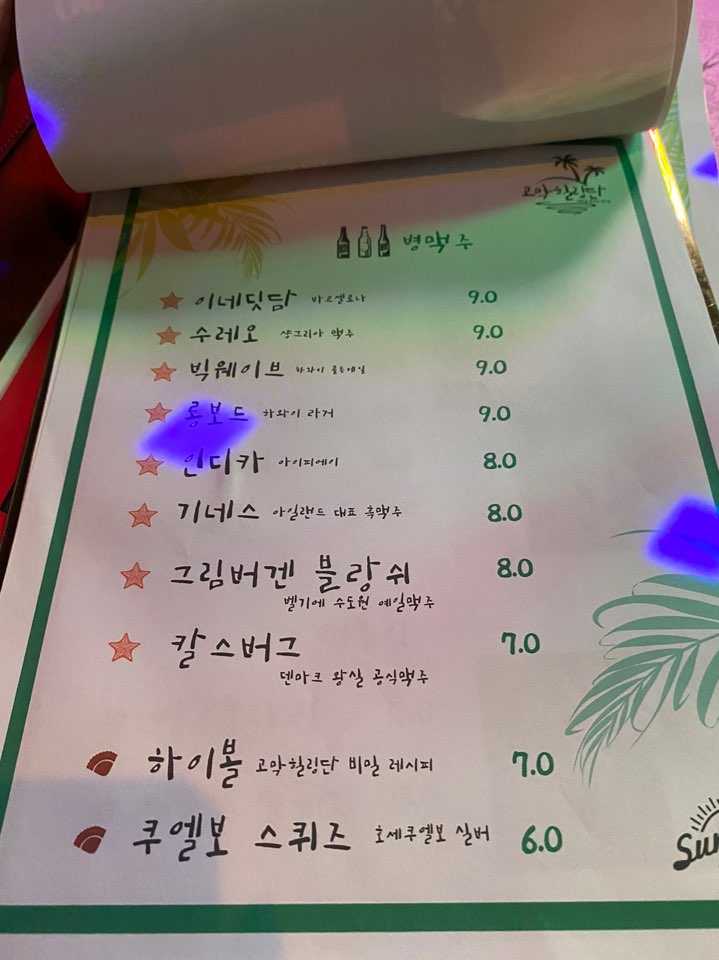 고막힐링단
병맥주
이네딧담 바르셀로나 9.0
수레오 샹그리아 맥주 9.0
빅웨이브 하와이 골든에일 9.0
롱보드 하와이 라거 9.0
인디카 아이피에이 8.0
기네스 아일랜드 대표 흑맥주 8.0
그림버겐 블랑쉬 8.0
벨기에 수도원 에일맥주
칼스버그 7.0
덴마크 왕실 공식맥주
하이볼 고막힐링단 비밀 레시피 7.0
쿠엘보 스퀴즈 호세쿠엘보 실버 6.0